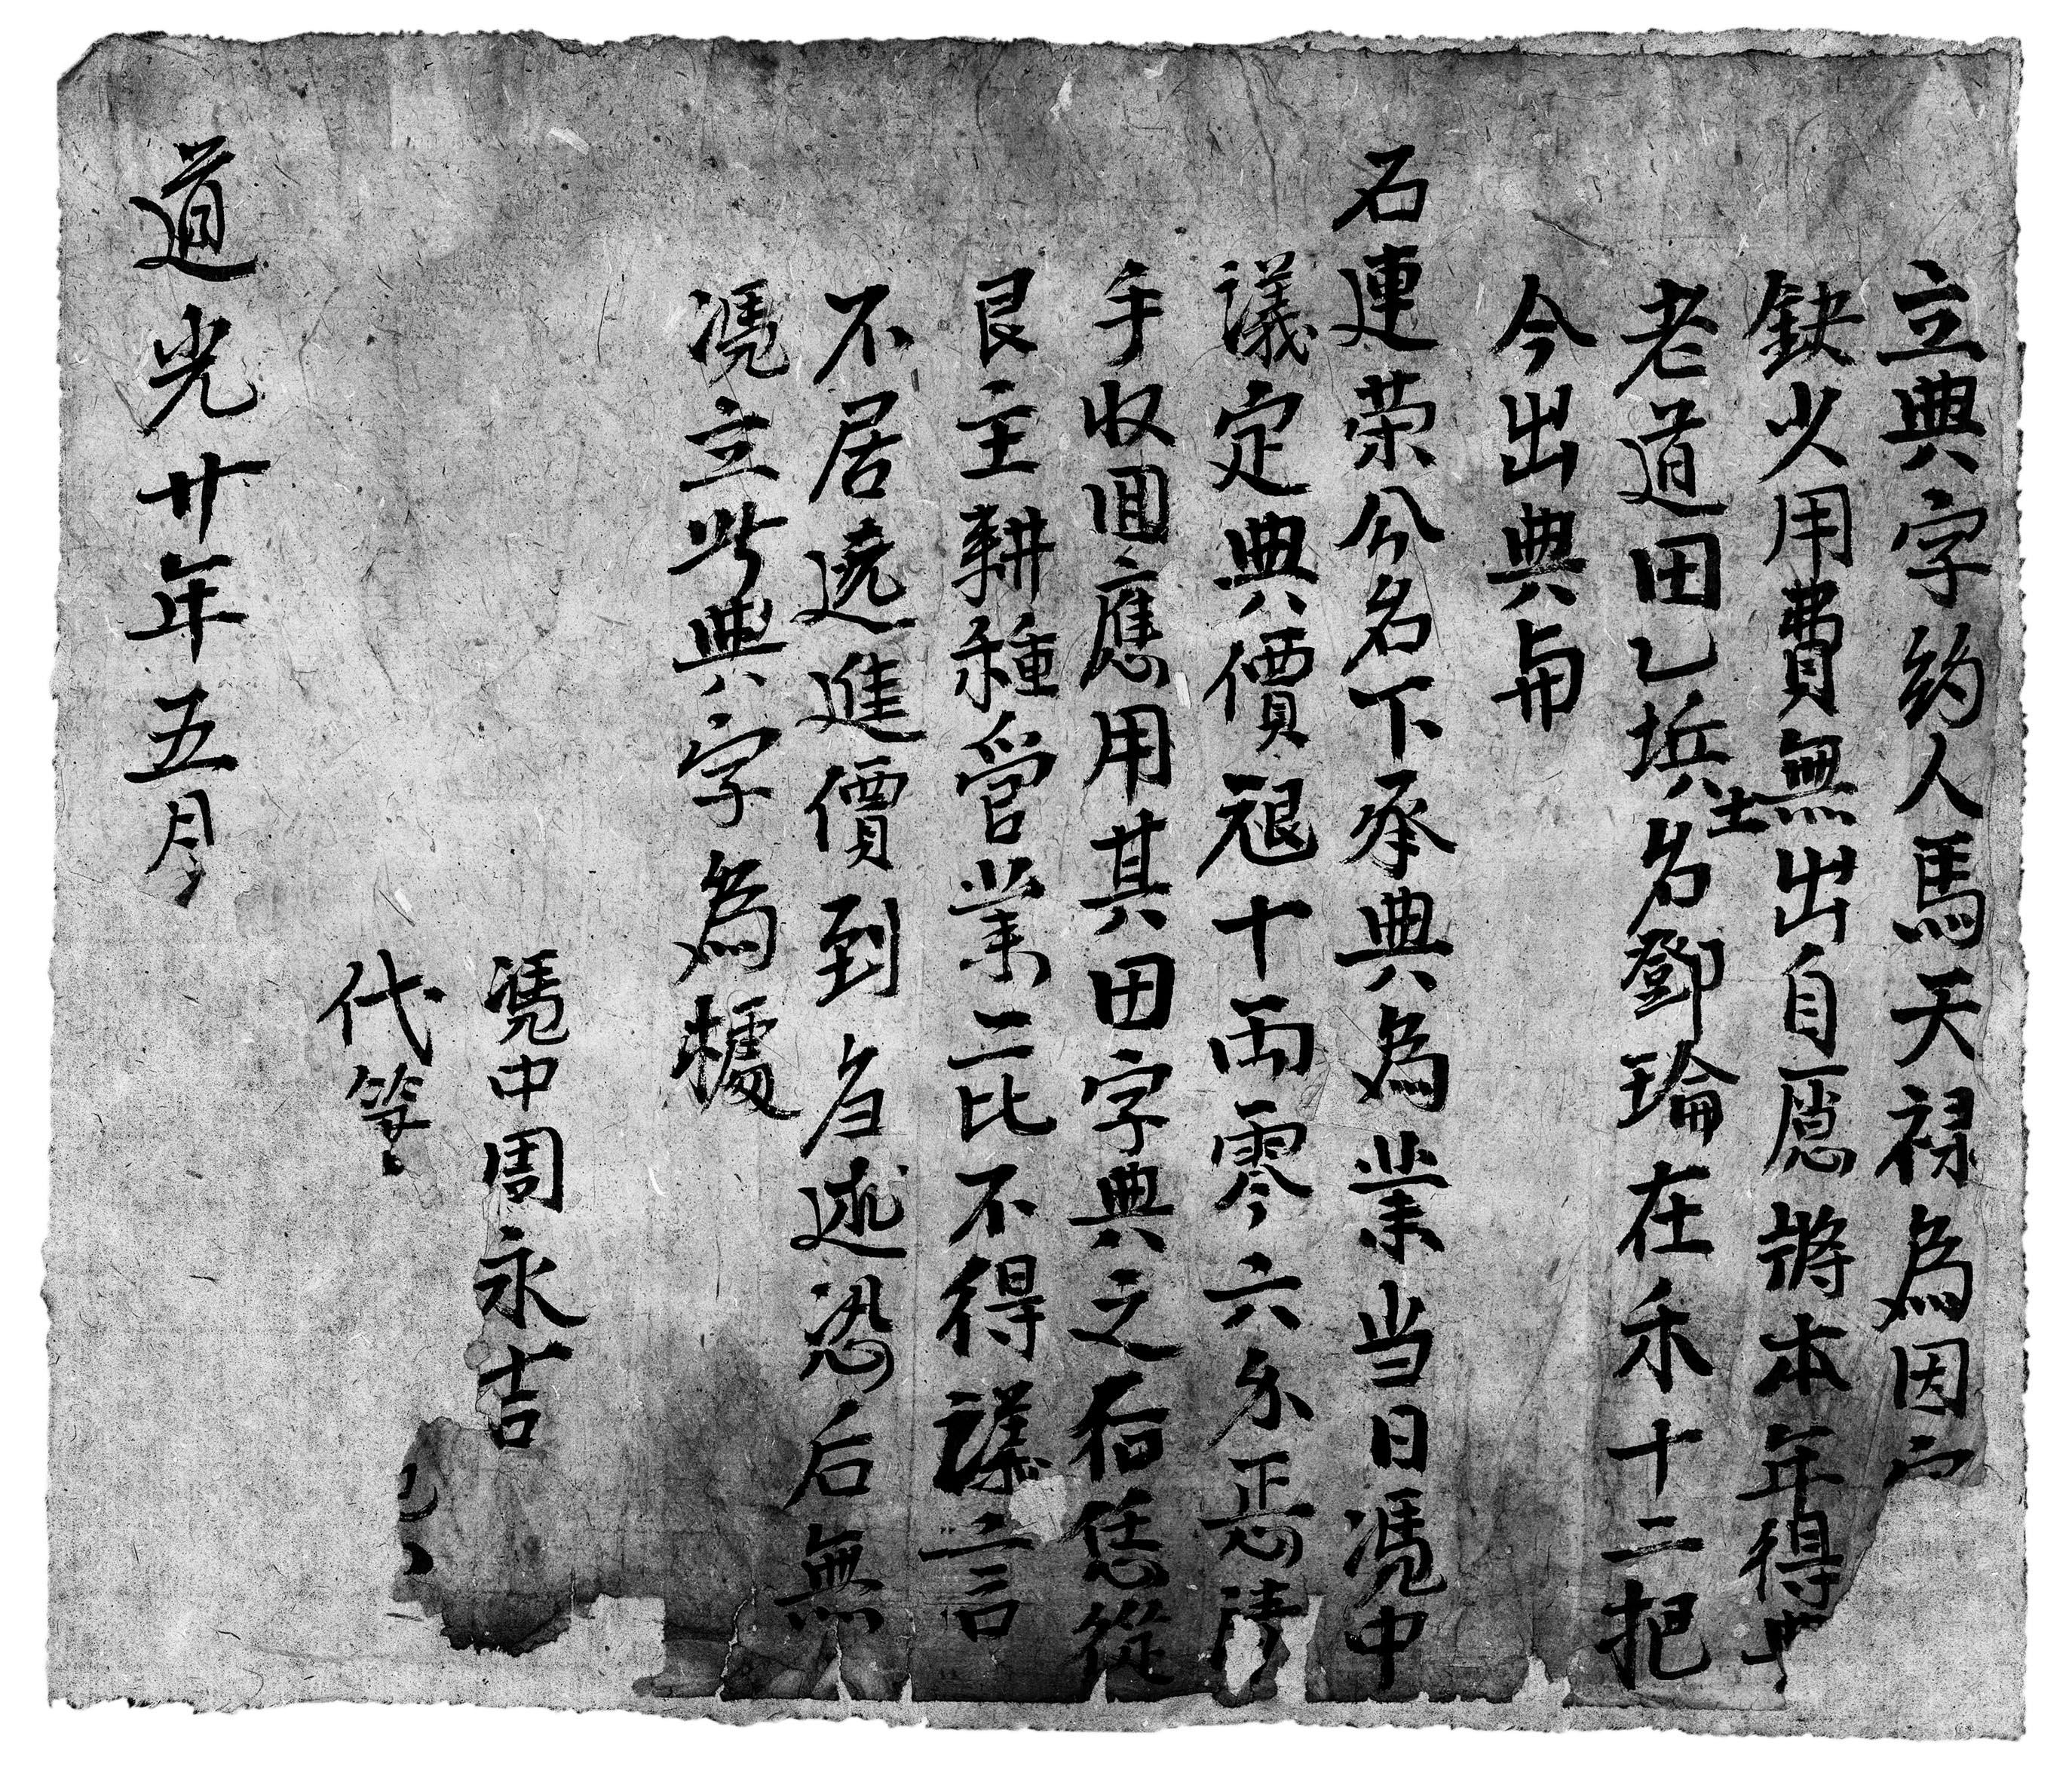 立典字約人馬天禄為因
鈌少用費無出自愿將本年得典
老道田乙坵土名鄧瑜在禾十二把
今出典與
石連荣今名下承典為業当日凴中
議定典價艮十両零六分恁清
手收回應用其田字典之后恁從
艮主耕種管業二比不得議言
不居遠進價到贖恐后無
凴立此典字為據
凴中周永吉
代笔
道光廿年五月